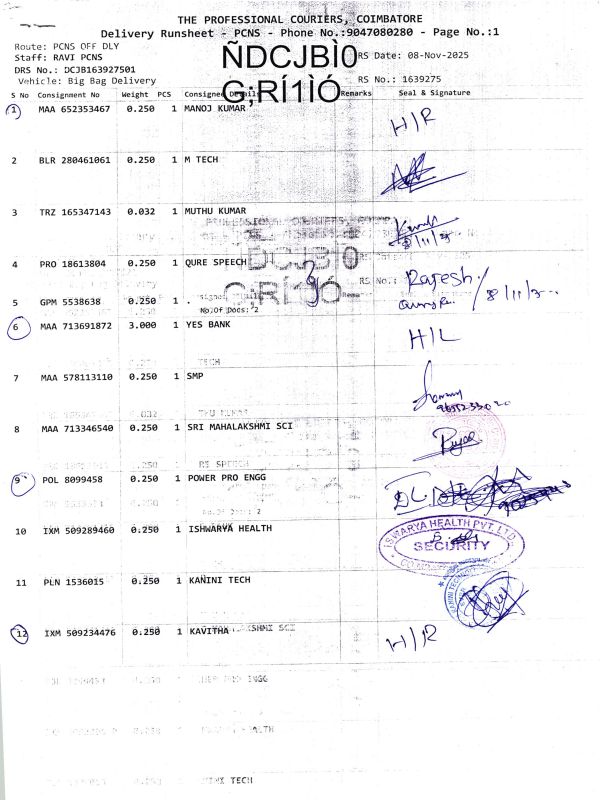 THE PROFESSIONAL COURIERS, COIMBATORE
Delivery Runsheet - PCNS - Phone No.:9047080280 - Page No.:1
Route: PCNS OFF DLY
Staff: RAVI PCNS
DRS No.: DCJB163927501
Vehicle: Big Bag Delivery
ÑDCJBÌ0
G;RÍ1ÌÓ
RS Date: 08-Nov-2025
RS No.: 1639275
S No Consignment No Weight PCS Consignee Details Remarks Seal & Signature
1 MAA 652353467 0.250 1 MANOJ KUMAR H/R
2 BLR 280461061 0.250 1 M TECH
3 TRZ 165347143 0.032 1 MUTHU KUMAR
8/11/25
4 PRO 18613804 0.250 1 QURE SPEECH RS No.: Rajesh
5 GPM 5538638 0.250 1 . 8/11/
No.Of Docs: 2
6 MAA 713691872 3.000 1 YES BANK H/L
TECH
7 MAA 578113110 0.250 1 SMP
8 MAA 713346540 0.250 1 SRI MAHALAKSHMI SCI
9 POL 8099458 0.250 1 POWER PRO ENGG
10 IXM 509289460 0.250 1 ISHWARYA HEALTH
ISWARYA HEALTH PVT. LTD.
SECURITY
11 PLN 1536015 0.250 1 KANINI TECH
12 IXM 509234476 0.250 1 KAVITHA H/R